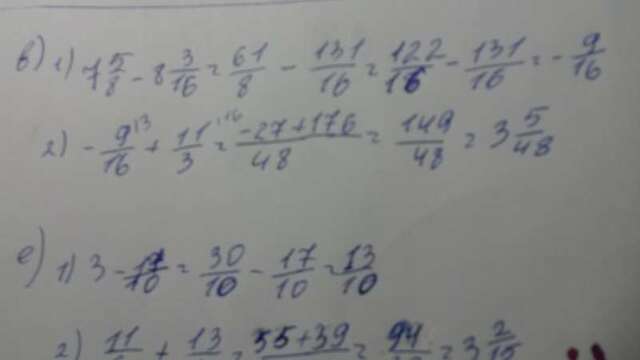 в) 1) 7 5/8 - 8 3/16 = 61/8 - 131/16 = 122/16 - 131/16 = - 9/16
2) - 9/16 + 11/3 = -27+176/48 = 149/48 = 3 5/48
е) 1) 3 - 17/10 = 30/10 - 17/10 = 13/10
2) 11 + 13 = 55+39 = 94 = 3 2/15